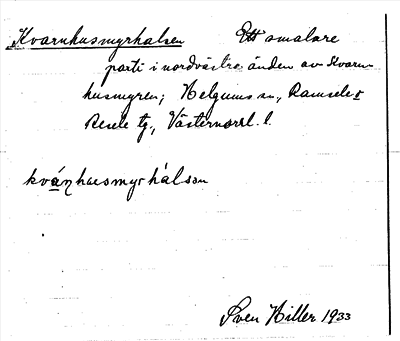 Kvarnhusmyrhalsen Ett smalare
parti i nordvästra änden av Kvarn-
husmyren; Helgums sn, Ramsele o
Resele tg., Västernorrl. l.
kvánhusmyrhálsan
Sven Hiller 1933